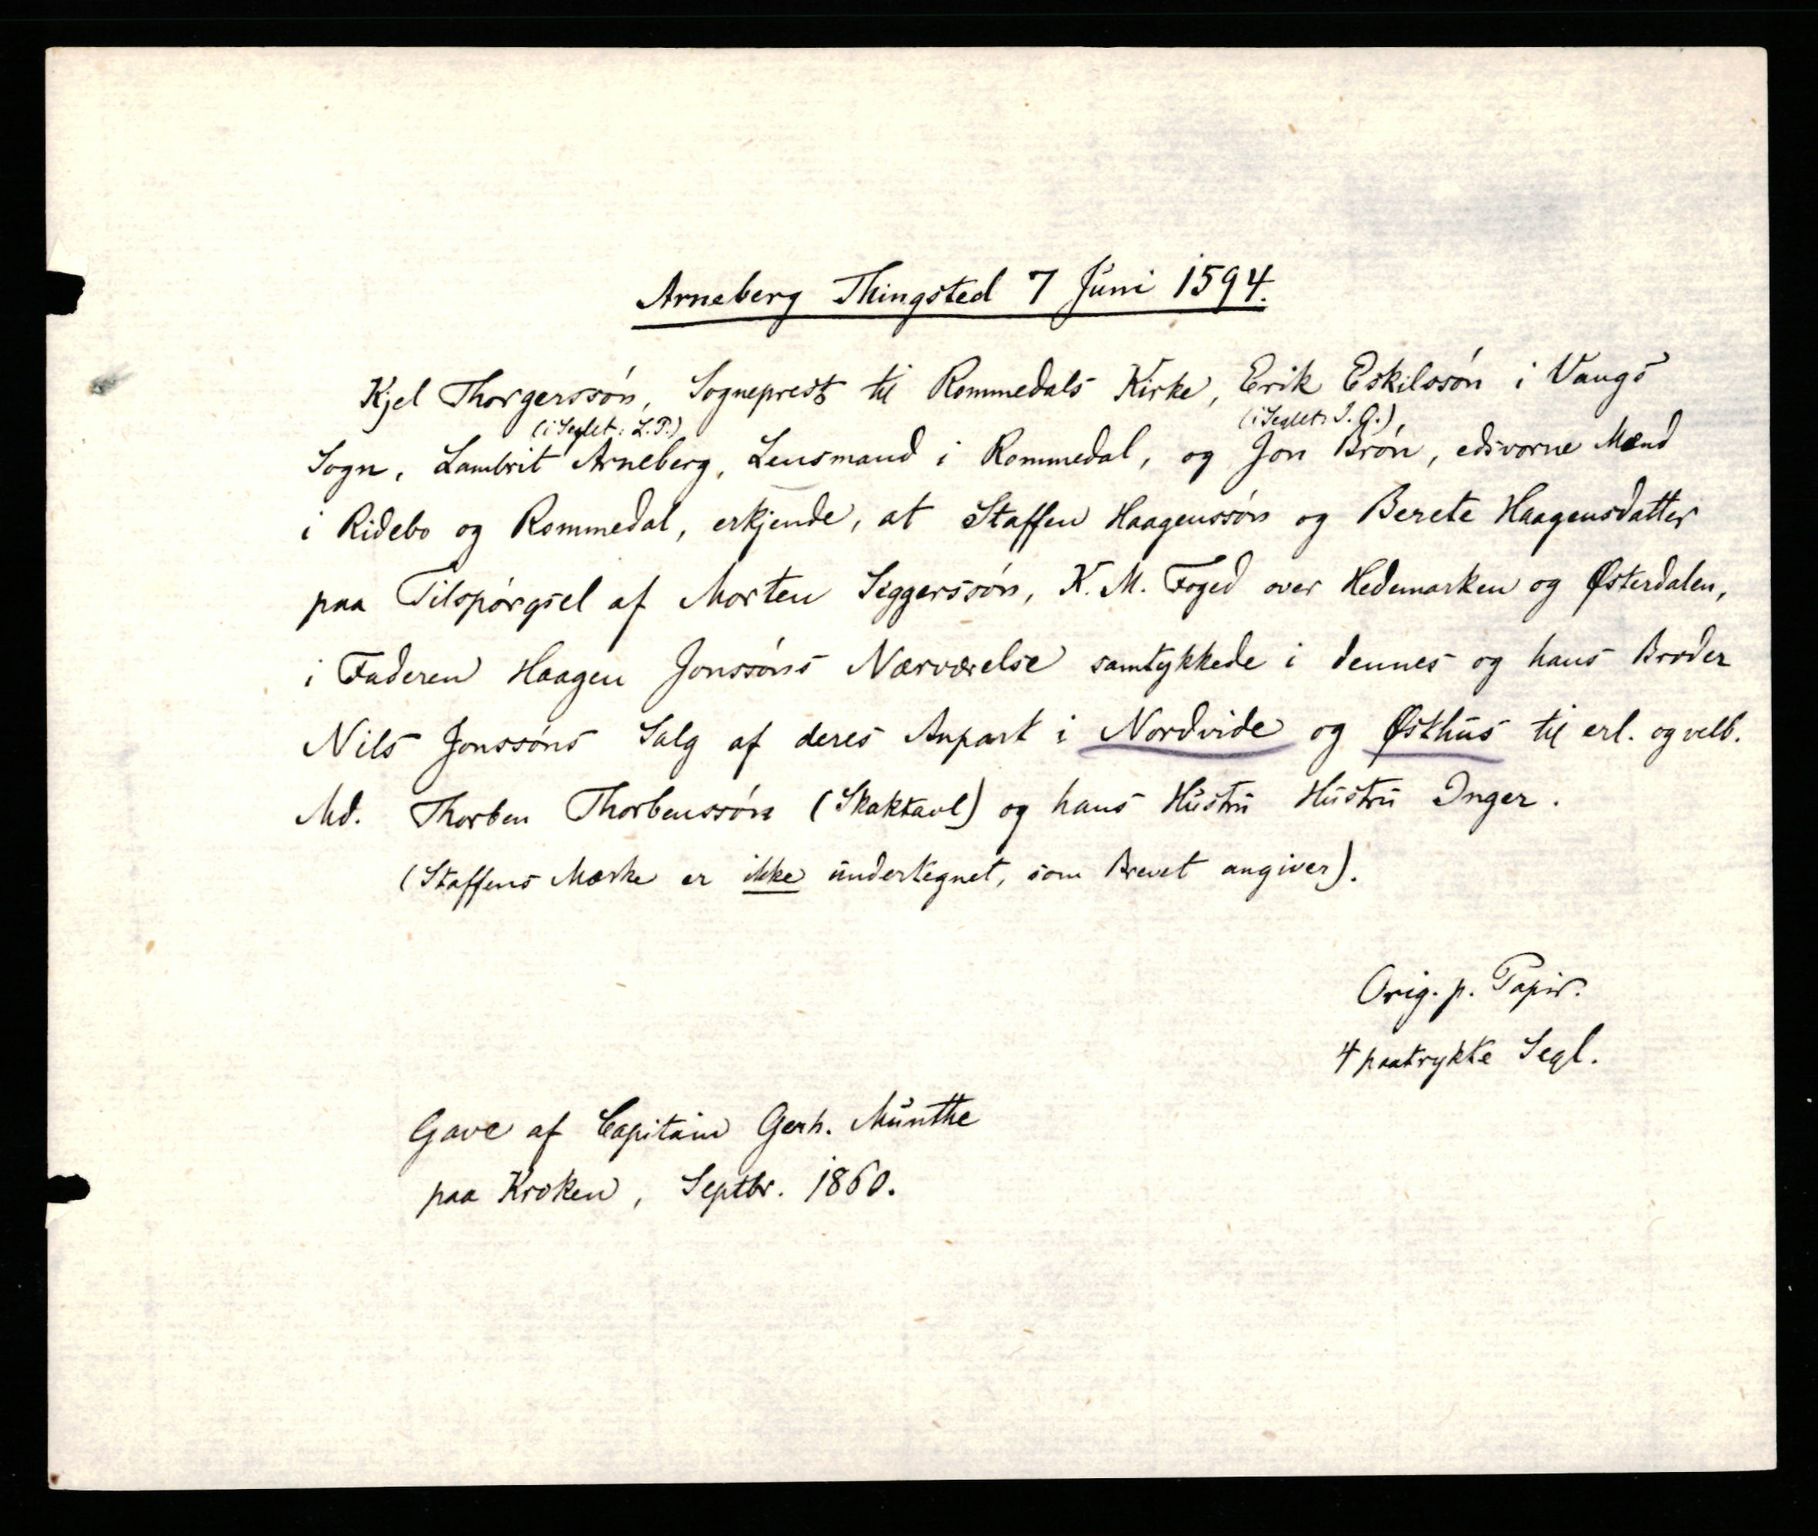 Arneberg Thingsted 7 Juni 1594.
Kjel Thorgerssøn, Sogneprest til Rommedals Kirke, Erik Eskilssøn i Vangs
(i Seglet: L.P.) (i Seglet: J.G.)
Sogn, Lambrit Arneberg, Lensmand i Rommedal, og Jon Brøn, edsvorne Mænd
i Ridebo og Rommedal, erkjende, at Staffen Haagenssøn og Berete Haagensdatter
paa Tilspørgsel af Morten Seggerssøn, K. M. Foged over Hedemarken og Østerdalen,
i Faderen Haagen Jonssøns Nærværelse samtykkede i dennes og hans Broder
Nils Jonssøns Salg af deres Anpart i Nordvide og Østhus til erl. og velb.
Md. Thorben Thorbenssøn (Skaktavl) og hans Hustru Hustru Inger.
(Staffens Mærke er ikke undertegnet, som Brevet angiver).
Orig. p. Papir.
4 paatrykte Segl.
Gave af Capitain Gerh. Munthe
paa Kroken, Septbr. 1860.